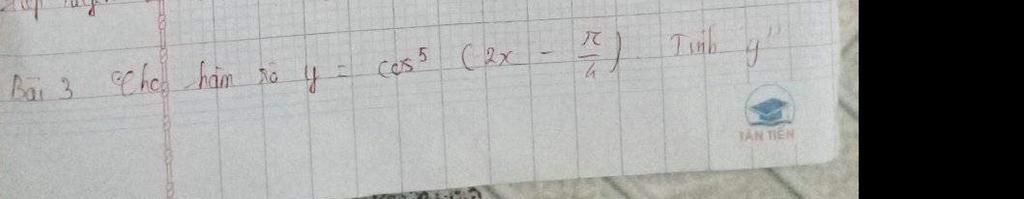 Bài 3 Cho hàm số y = cos⁵ (2x - π/4) Tính y''
TÂN TIẾN